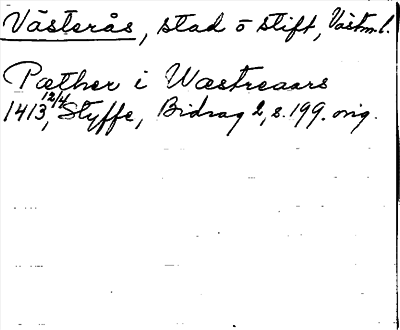 Västerås, stad o stift, Västm.l.
Pæther i Wæstreaars
1413 12/4, Styffe, Bidrag 2, s. 199. orig.